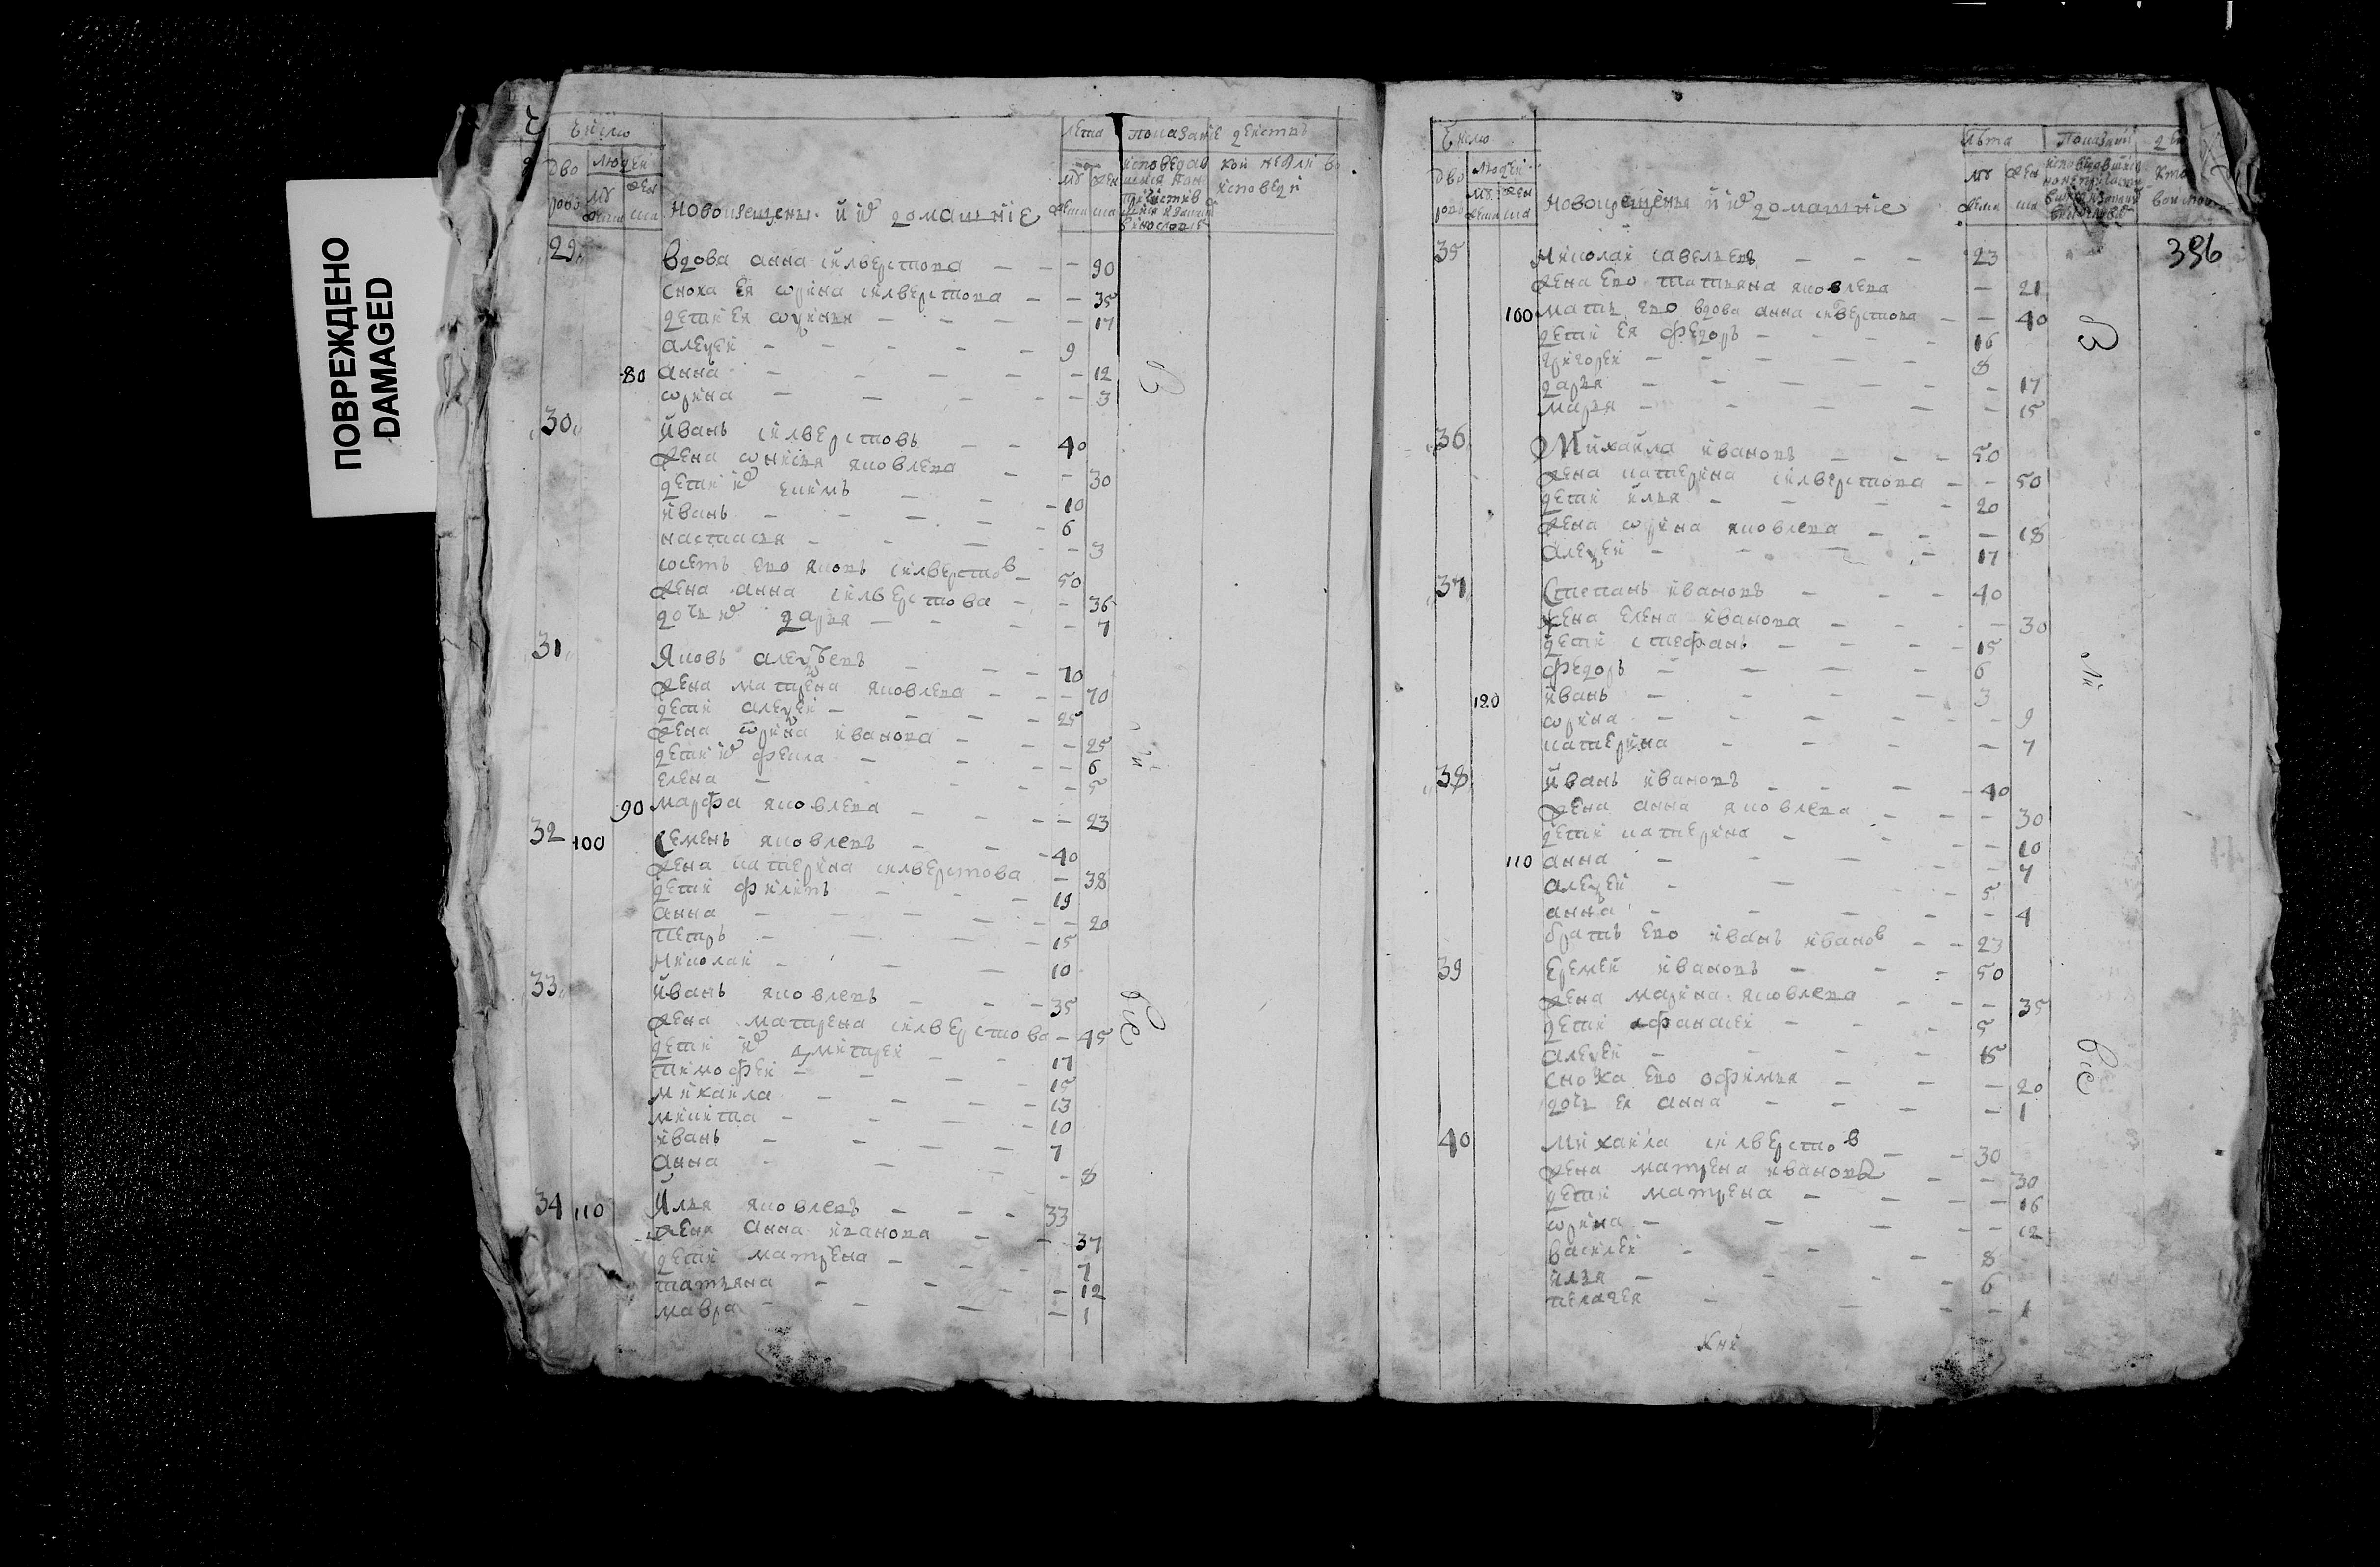 ПОВРЕЖДЕНО
DAMAGED
Число
Дво
ровъ
людей
му
жеска
жен
ска
новокрещены и их домашніе
лета
му
жеска
жен
ска
показаніе действъ
29
вдова анна силверстова - - - 90
сноха ея орина силверстова - - 35
дети ея - - - - 17
алеѯеи - - - - - 9
80 анна - - - - - 12
орина - - - - - 3
30
иванъ силверстовъ - - 40
жена онисья яковлева - - 30
дети их екимъ - - - 10
иванъ - - - - - 6
настасья - - - - - 3
ево яковъ силверстов - 50
жена анна силверстова - - 36
дочь их дарья - - - - 7
31
Яковъ алеѯѣевъ - - - 70
жена матрена яковлева - - - 70
дети алеѯеи - - - - 25
жена орина иванова - - - 25
дети их фекла - - - - 6
елена - - - - 5
90 марфа яковлева - - - - 23
32 100
Семенъ яковлевъ - - - 40
жена катерина силверстова - 38
дети филипъ - - - 19
анна - - - - - 20
петръ - - - - 15
николаи - - - 10
33
иванъ яковлевъ - - - 35
жена матрена силверстова - 45
дети их дмитреи - - 17
тимофеи - - - - 15
михаила - - - - 13
микита - - - - 10
иванъ - - - - 7
анна - - - - 8
34 110
Илья яковлевъ - - - 33
жена анна иванова - - 37
дети матрена - - - 7
татьяна - - - - 12
мавра - - - - 1
Число
Дво
ровъ
людей
му
жеска
жен
ска
новокрещены и их домашніе
лѣта
му
жеска
жен
ска
396
35
Николаи савельевъ - - - 23
жена ево татьяна яковлева - 21
100 мать ево вдова анна силверстова - - 40
дети ея федоръ - - - - 16
григореи - - - - - 8
дарья - - - - - - 17
марья - - - - - 15
36
Михаила ивановъ - - - 50
жена катерина силверстова - - 50
дети илья - - - - 20
жена орина яковлева - - - 18
алеѯеи - - - - 17
37
Степанъ ивановъ - - - 40
жена елена иванова - - - - 30
дети стефанъ - - - - 15
федоръ - - - - 6
120 иванъ - - - - 3
орина - - - - - - 9
катерина - - - - 7
38
иванъ ивановъ - - - - 40
жена анна яковлева - - - 30
дети катерина - - - - 10
110 анна - - - - 7
алеѯеи - - - 5
анна - - - - - 4
братъ ево иванъ иванов - - 23
39
Еремеи ивановъ - - - 50
жена марина яковлева - - - 35
дети афанасеи - - - 5
алеѯеи - - - - 15
сноха ево офимья - - - 20
дочь ея анна - - - - 1
40
Михаила силверстов - - 30
жена матрена иванова - - 30
дети матрена - - - - 16
орина - - - - 12
василеи - - - 8
илья - - - - 6
пелагея - - - - 1